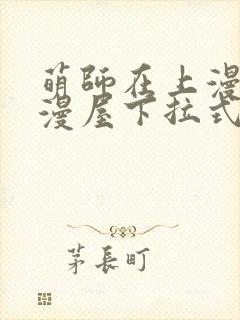 萌師在上漫
漫屋下拉式
茅長町